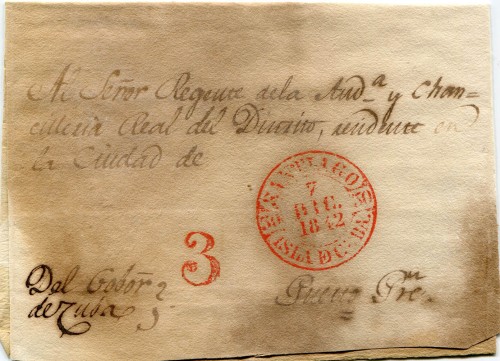 Al Señor Regente de la Aud.ª y Chan=
cilleria Real del Distrito, residente en
la Ciudad de
SANTIAGO
7
DIC.
1842
ISLA DE C.
3
Del Gobor
de Cuba
Puerto Pre.